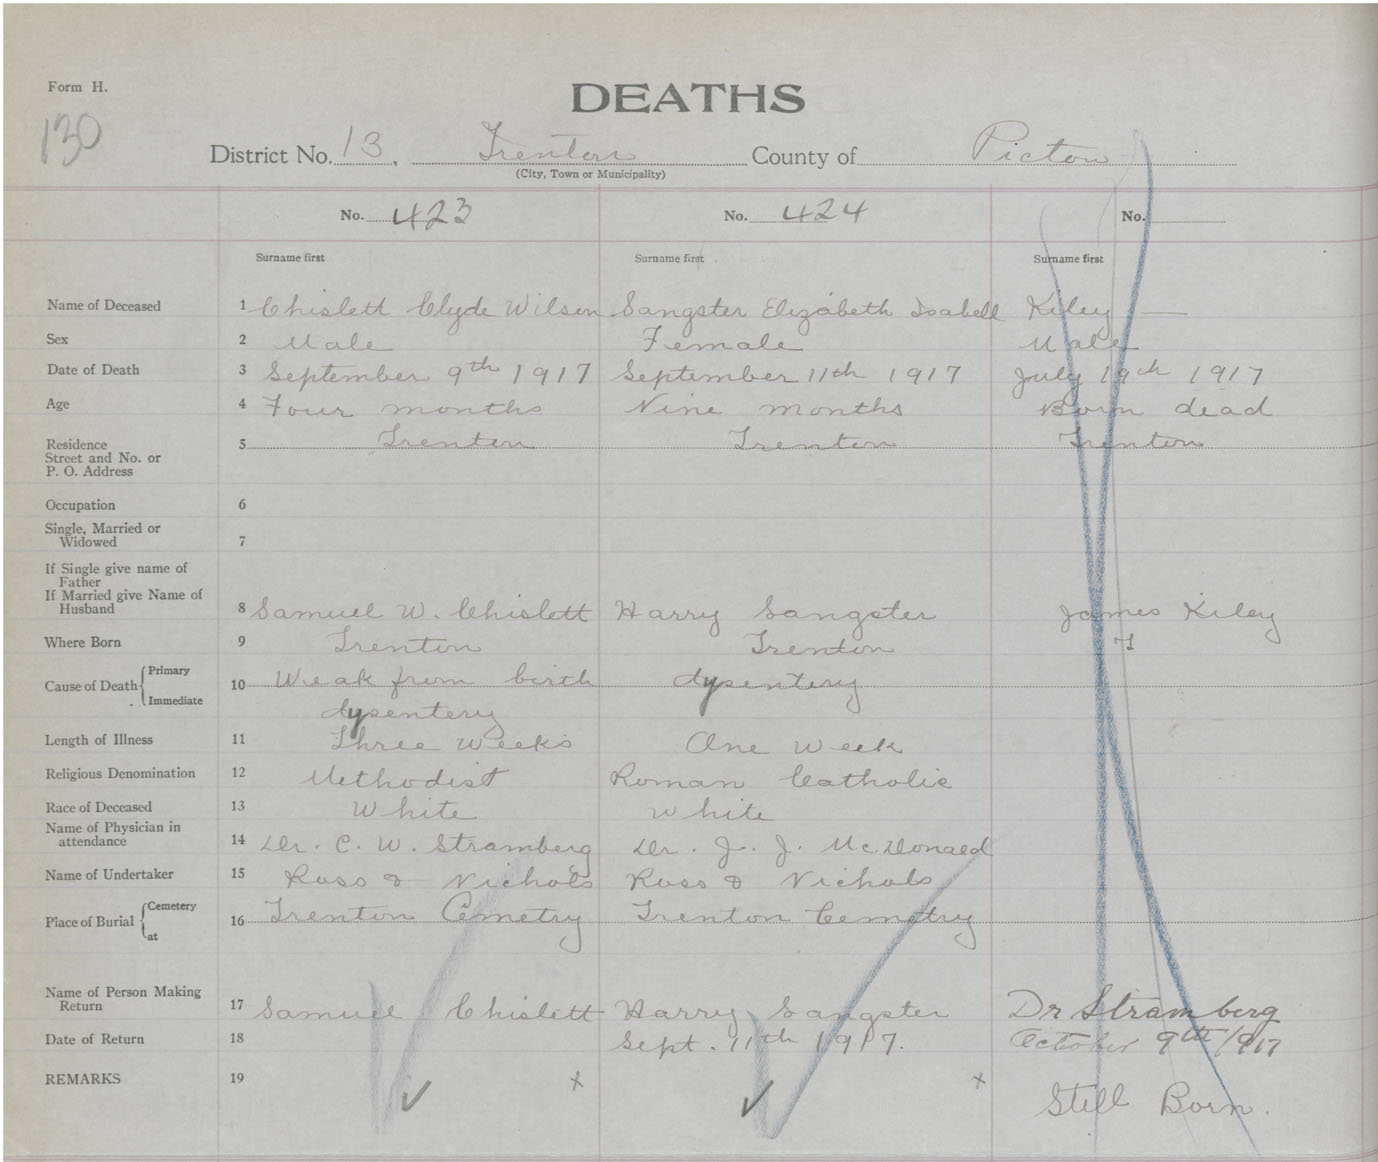 Form H.
DEATHS
130
District No. 13, Trenton County of Pictou
(City, Town or Municipality)
No. 423 No. 424 No.
Surname first Surname first Surname first
Name of Deceased 1 Chislett Clyde Wilson Sangster Elizabeth Isabell Kiley —
Sex 2 Male Female Male
Date of Death 3 September 9th 1917 September 11th 1917 July 19th 1917
Age 4 Four months Nine months Born dead
Residence 5 Trenton Trenton Trenton
Street and No. or
P. O. Address
Occupation 6
Single, Married or
Widowed 7
If Single give name of
Father
If Married give Name of
Husband 8 Samuel W. Chislett Harry Sangster James Kiley
Where Born 9 Trenton Trenton T
Cause of Death Primary 10 Weak from birth dysentery
Immediate dysentery
Length of Illness 11 Three Weeks One Week
Religious Denomination 12 Methodist Roman Catholic
Race of Deceased 13 White White
Name of Physician in
attendance 14 Dr. C. W. Stramberg Dr. J. J. McDonald
Name of Undertaker 15 Ross & Nichols Ross & Nichols
Place of Burial Cemetery at 16 Trenton Cemetry Trenton Cemetry
Name of Person Making
Return 17 Samuel Chislett Harry Sangster Dr Stramberg
Date of Return 18 Sept. 11th 1917. October 9th/1917
REMARKS 19 x x Still Born.